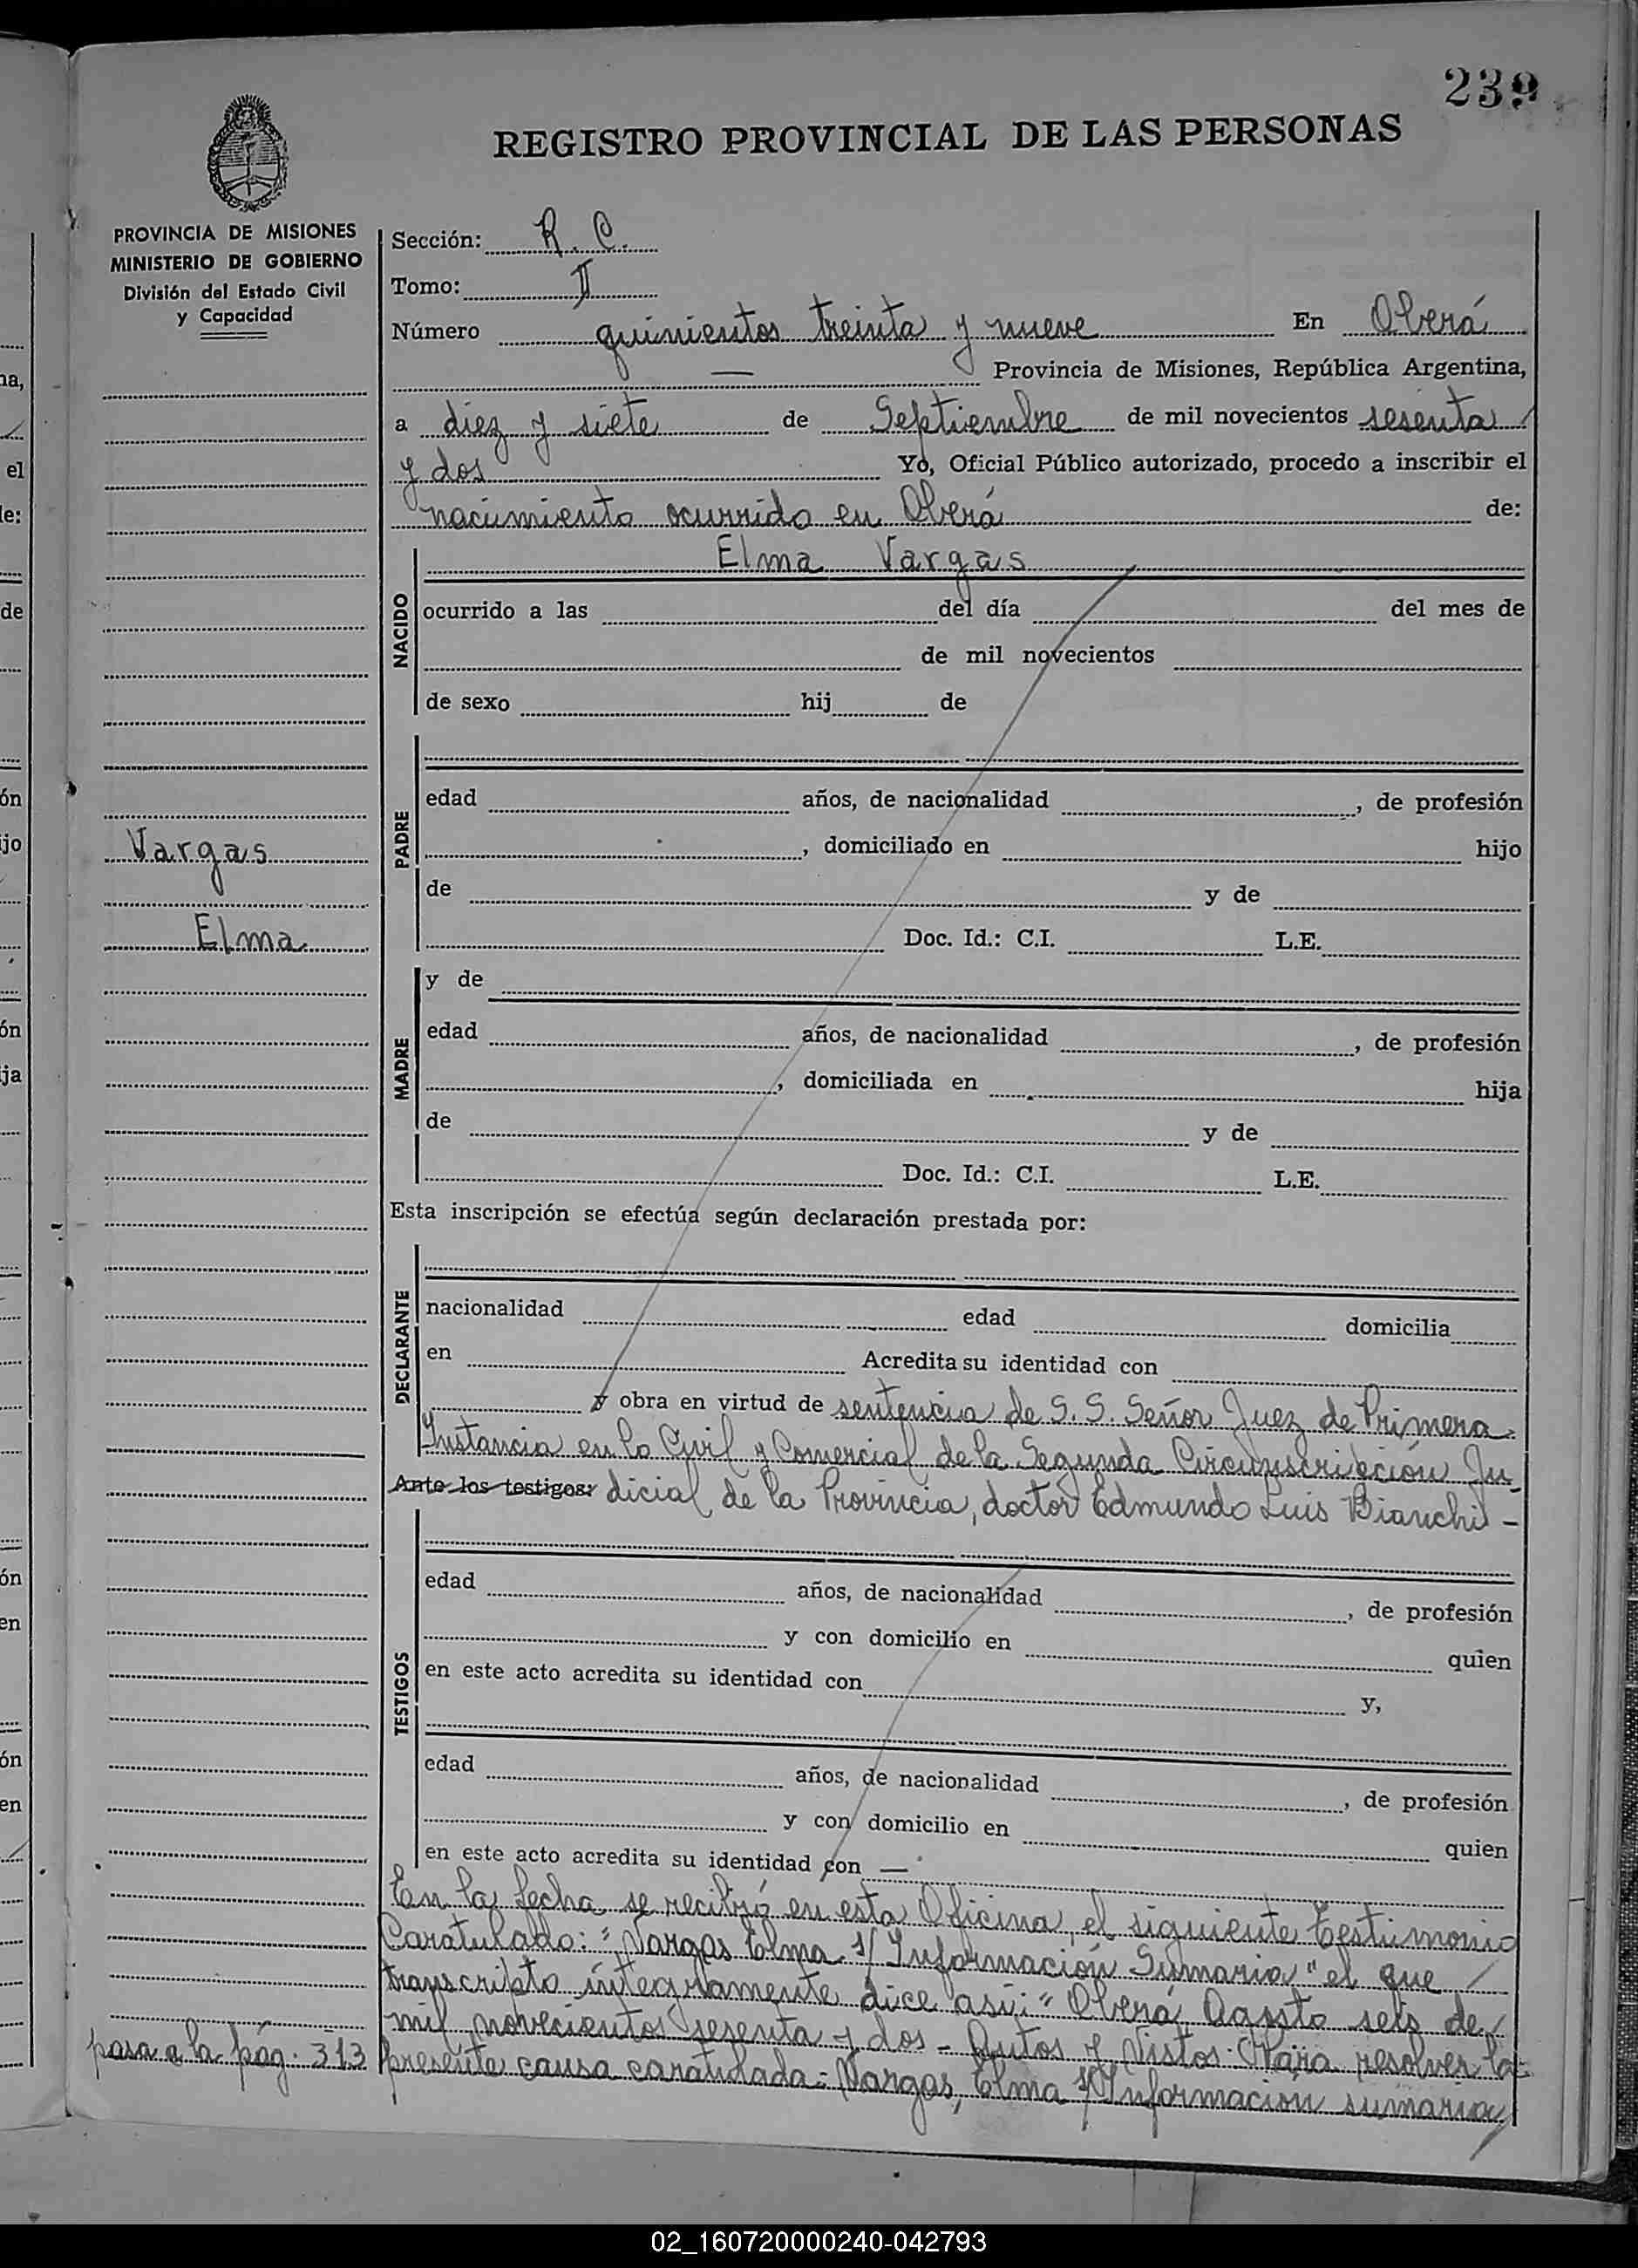 239
REGISTRO PROVINCIAL DE LAS PERSONAS
PROVINCIA DE MISIONES
MINISTERIO DE GOBIERNO
División del Estado Civil
y Capacidad
Sección: R. C.
Tomo: II
Número quinientos treinta y nueve En Oberá
— Provincia de Misiones, República Argentina,
a diez y siete de Septiembre de mil novecientos sesenta /
y dos Yo, Oficial Público autorizado, procedo a inscribir el
nacimiento ocurrido en Oberá de:
NACIDO
Elma Vargas
ocurrido a las del día del mes de
de mil novecientos
de sexo hij de
PADRE
edad años, de nacionalidad , de profesión
, domiciliado en hijo
de y de
Doc. Id.: C.I. L.E.
Vargas
Elma
MADRE
y de
edad años, de nacionalidad , de profesión
, domiciliada en hija
de y de
Doc. Id.: C.I. L.E.
Esta inscripción se efectúa según declaración prestada por:
DECLARANTE
nacionalidad edad domicilia
en Acredita su identidad con
y obra en virtud de sentencia de S. S. Señor Juez de Primera
Instancia en lo Civil y Comercial de la Segunda Circunscripción Ju_
Ante los testigos: dicial de la Provincia, doctor Edmundo Luis Bianchi -
TESTIGOS
edad años, de nacionalidad , de profesión
y con domicilio en quien
en este acto acredita su identidad con y,
edad años, de nacionalidad , de profesión
y con domicilio en quien
en este acto acredita su identidad con —
En la fecha se recibió en esta Oficina, el siguiente Testimonio
Caratulado: "Vargas Elma s/ Información Sumaria" el que /
transcripto íntegramente dice así: "Oberá, Agosto seis de /
mil novecientos sesenta y dos - Autos y Vistos: Para resolver la
pasa a la pág. 313 presente causa caratulada: Vargas, Elma s/ Información sumaria y
02_160720000240-042793